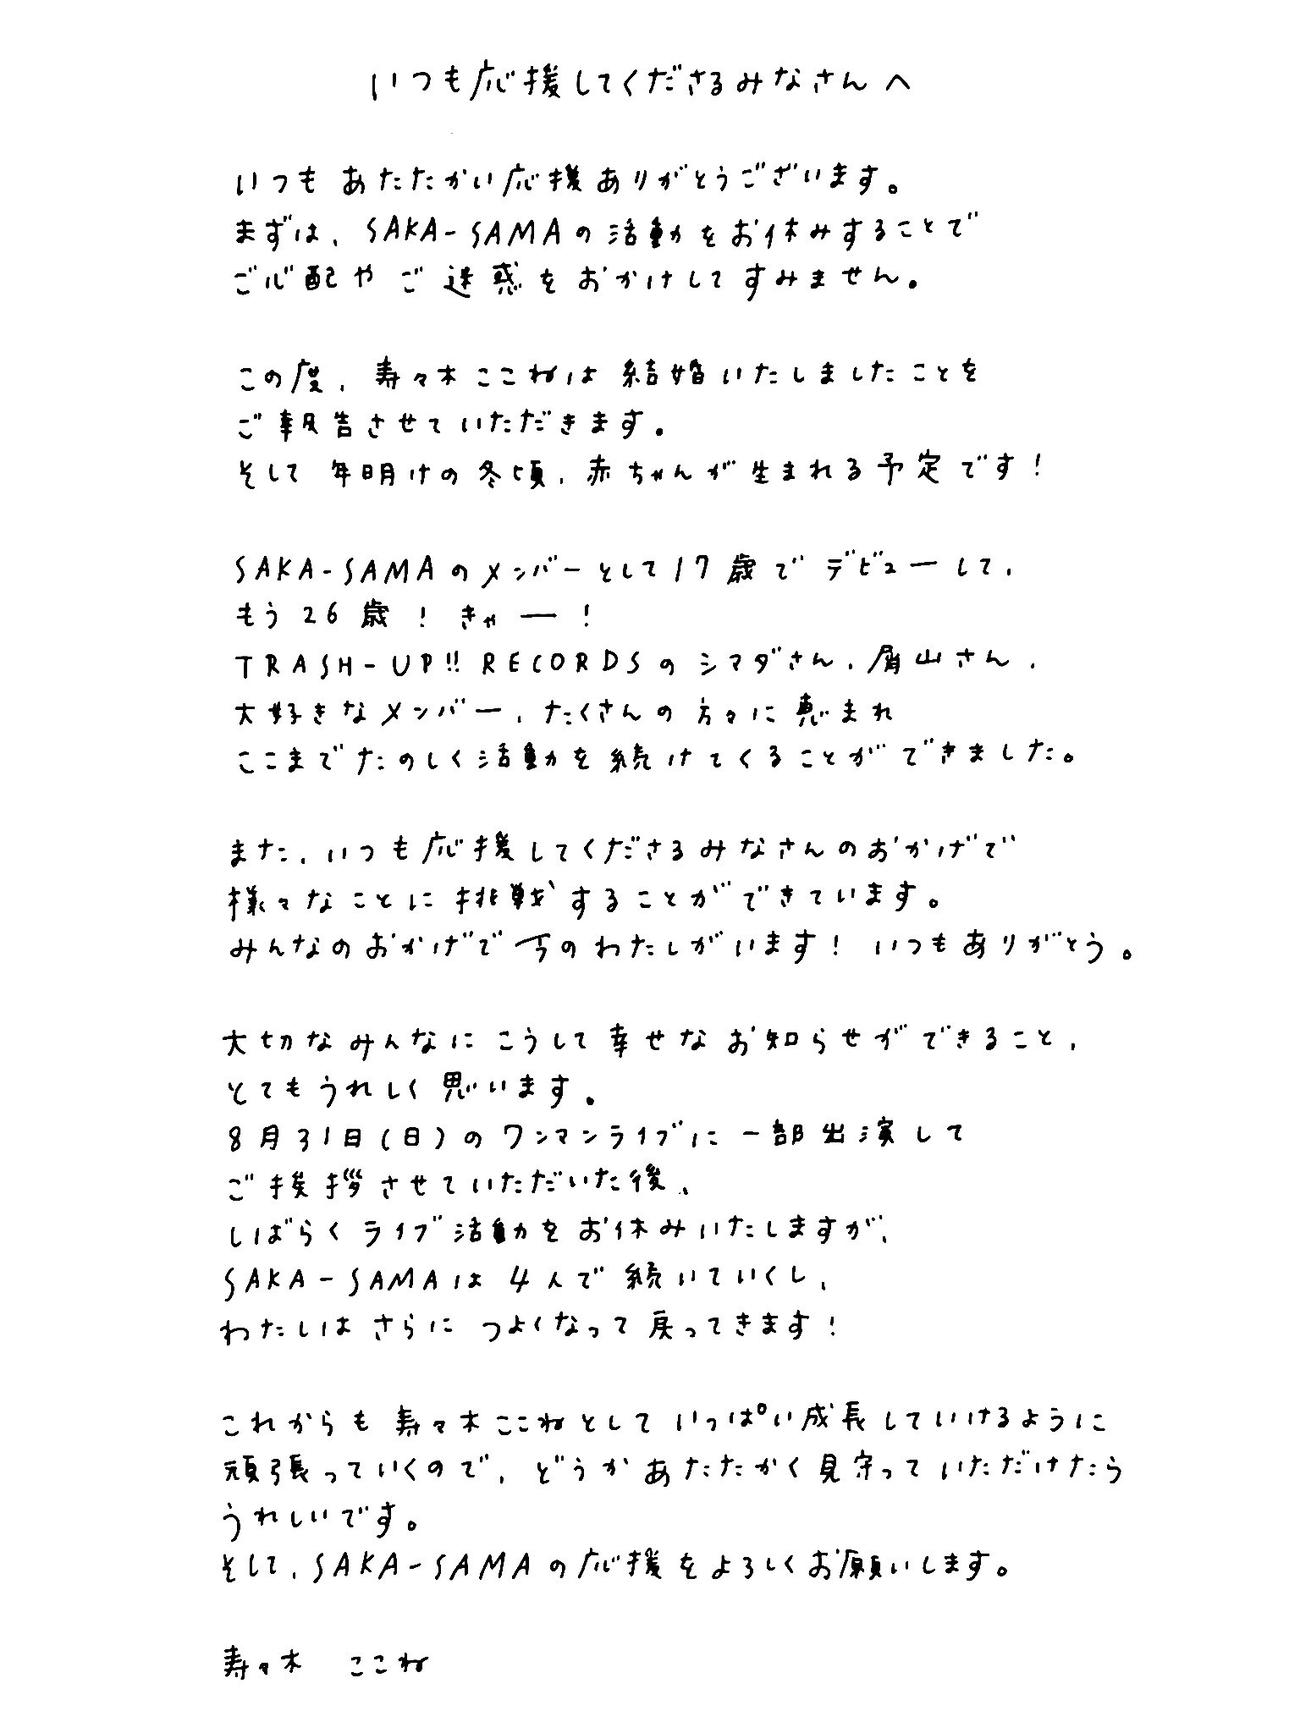 いつも応援してくださるみなさんへ
いつもあたたかい応援ありがとうございます。
まずは、SAKA-SAMAの活動をお休みすることで
ご心配やご迷惑をおかけしてすみません。
この度、寿々木ここねは結婚いたしましたことを
ご報告させていただきます。
そして年明けの冬頃、赤ちゃんが生まれる予定です！
SAKA-SAMAのメンバーとして17歳でデビューして、
もう26歳！きゃー！
TRASH-UP!! RECORDSのシマダさん、屑山さん、
大好きなメンバー、たくさんの方々に恵まれ
ここまでたのしく活動を続けてくることができました。
また、いつも応援してくださるみなさんのおかげで
様々なことに挑戦することができています。
みんなのおかげで今のわたしがいます！いつもありがとう。
大切なみんなにこうして幸せなお知らせができること、
とてもうれしく思います。
8月31日(日)のワンマンライブに一部出演して
ご挨拶させていただいた後、
しばらくライブ活動をお休みいたしますが、
SAKA-SAMAは4人で続いていくし、
わたしはさらにつよくなって戻ってきます！
これからも寿々木ここねとしていっぱい成長していけるように
頑張っていくので、どうかあたたかく見守っていただけたら
うれしいです。
そして、SAKA-SAMAの応援をよろしくお願いします。
寿々木 ここね